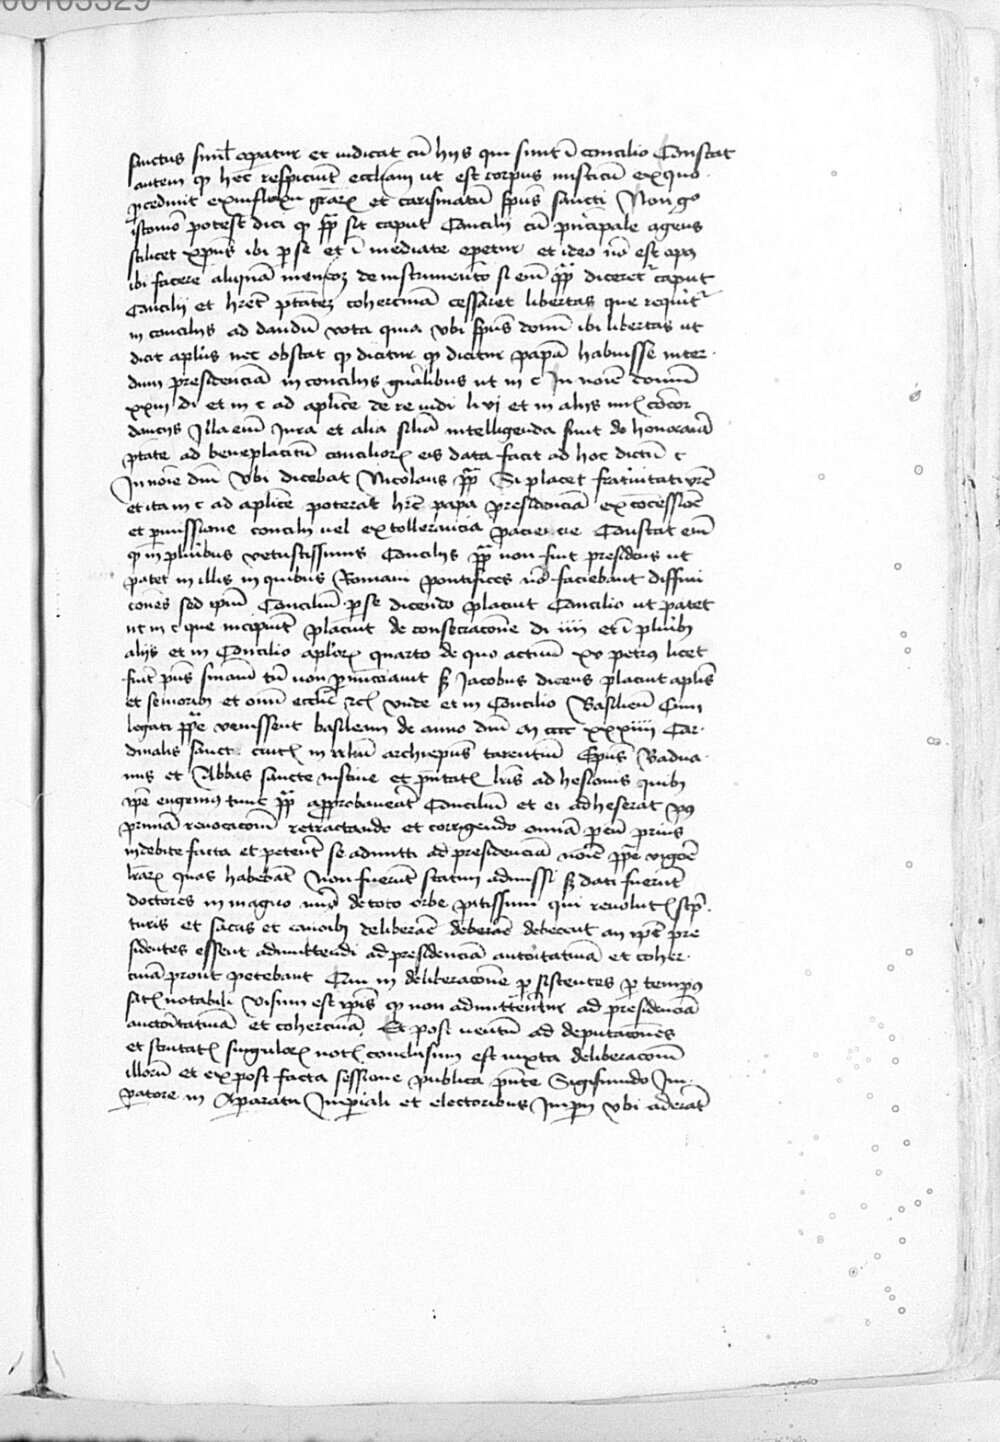 00103329
sanctus simul operatur et iudicat cū hijs qui sunt ī concilio Constat
autem qz hec respiciūt eccliam ut est corpus misticū ex quo
pcedunt ex influxu grarꝫ et carismatū spūs sancti Non go
istomo potest dici qz pp̄ sit caput Concilij cū principale agens
scilicet xpūs ibi p se et īmediate operetur et ideo nō est opus
ibi facere aliquā mencoꝫ de instrumento si em̄ pp̄ diceretr caput
Concilij et hret ptatem cohercinā cessaret libertas que requirtr
in concilijs ad dandū vota quia vbi spūs domī ibi libertas ut
dicit aplus nec obstat qz dicitur qz dicitur papā habuisse inter
dum presidenciā in concilijs gnalibus ut in c In noīe domī
xxiij di et in c ad aplice de re iudi li vi et in alijs
dancijs Illa em̄ Iura et alia silia intelligenda sunt de honoraria
ptate ad beneplacitū conciliorꝫ eis data facit ad hoc dictū c
In noīe dm̄ Vbi dicebat Nicolaus pp̄ Si placet fratnitati vrē
et ita in c ad aplice poterat hrē papa presidenciā ex cōcessione
et pmissione concilij uel ex tollerancia paciencie Constat em̄
qz in pluribus vetustissimis Concilijs pp̄ non fuit presidens ut
patet in illis in quibus Romani pontifices nō faciebant diffini
cones sed ipm̄ Conciliū p se dicendo placuit Concilio ut patet
ut in c que incipiūt placuit de consecracone di iiii et ī plurib
alijs et in Concilio aplorꝫ quarto de quo actuū xv petrus licet
fuit pns simam tn̄ non pnūciauit sꝫ Jacobus dicens placuit aplis
et seniorib et omī ecclie rcꝫ vnde et in Concilio Basilien̄ Cum
legati ppe venissent basileam de anno dm̄ M cccc xxxiiii Car
dinalis sancte crucꝫ in irlm̄ archiepus tarentin̄ Epūs Padua
nus et Abbas sancte iustine et pntatꝫ lris adhesionis quib
ipe eugenius tunc pp̄ approbaueat Conciliū et ei adheserat
primā reuocacom̄ retractando et corrigendo omīa p eū prius
indebite facta et petent se admitti ad presidenciā noīe ppe vigore
lrarꝫ quas habebāt Non fuerūt statim admissi sꝫ dati fuerūt
doctores in magno nūo de toto orbe pitissimi qui reuolutꝫ scrip
turis et sacris et canoib deliberare deberāt debecent an ipī pre
sidentes essent admittendi ad presidenciā auctoritatiuā et coher
ciuā prout petebant Cum in deliberacone psistentes p tempus
satꝫ notabili visum est ipis qz non admittentur ad presidenciā
auctoritatiuā et coherciuā Et post uentū ad deputacones
et scrutatꝫ singulorꝫ notꝫ conclusum est iuxta deliberacom̄
illorū et ex post facta sessione publica pnte Sigismundo Im
patore in Apparatu Imperiali et electoribus Imperij vbi aderāt